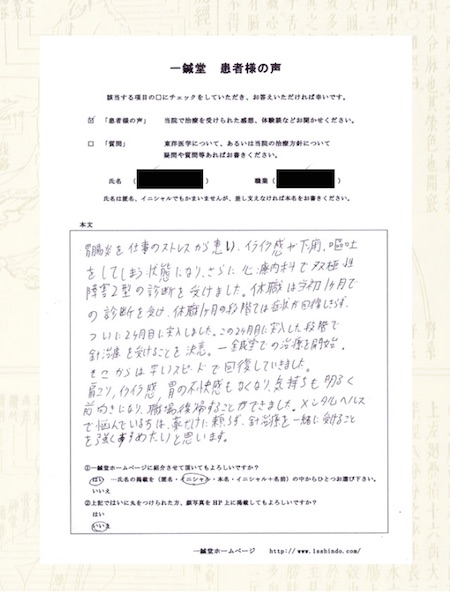 一鍼堂 患者様の声
該当する項目の□にチェックをしていただき、お答えいただければ幸いです。
☑ 「患者様の声」 当院で治療を受けられた感想、体験談などお聞かせください。
□ 「質問」 東洋医学について、あるいは当院の治療方針について
疑問や質問等あればお書きください。
氏名 ( ) 職業 ( )
氏名は匿名、イニシャルでもかまいませんが、差し支えなければ本名をお書きください。
本文
胃腸炎を仕事のストレスから患い、イライラ感や下痢、嘔吐
をしてしまう状態になり、さらに心療内科で双極性
障害2型の診断を受けました。休職は当初1ヶ月で
の診断を受け、休職1ヶ月の段階では症状が回復しきらず、
ついに2ヶ月目に突入しました。この2ヶ月目に突入した段階で
針治療を受けることを決意。一鍼堂での治療を開始。
そこからは早いスピードで回復していきました。
肩こり、イライラ感、胃の不快感もなくなり、気持ちも明るく
前向きになり、職場復帰することができました。メンタルヘルス
で悩んでいる方は、薬だけに頼らず、針治療を一緒に受けること
を強くすすめたいと思います。
①一鍼堂ホームページに紹介させて頂いてもよろしいですか?
はい →氏名の掲載を(匿名・イニシャル・本名・イニシャル+名前)の中からひとつお選び下さい。
いいえ
②上記ではいに丸をつけられた方、顔写真をHP上に掲載してもよろしいですか?
はい
いいえ
一鍼堂ホームページ http://www.1sshindo.com/